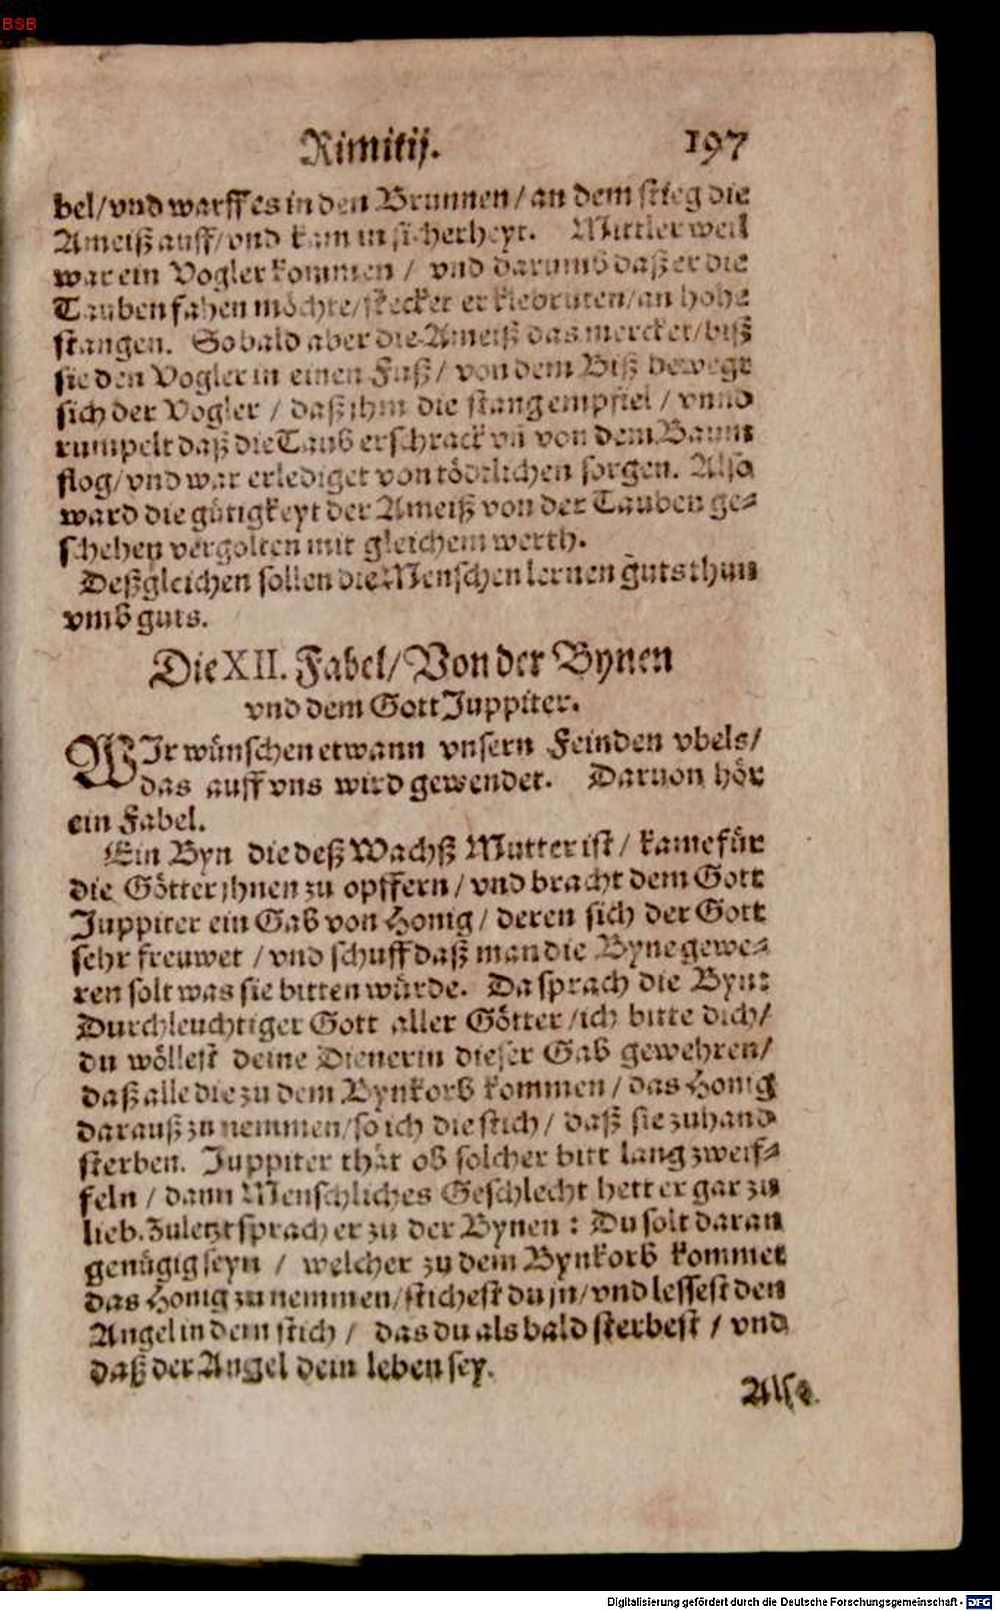 BSB
Rimitij. 197
bel/vnd warff es in den Brunnen/an dem stieg die
Ameiß auff/vnd kam in sicherheyt. Mittler weil
war ein Vogler kommen / vnd darumb daß er die
Tauben fahen möchte/stecket er klebruten/an hohe
stangen. Sobald aber die Ameiß das mercket/biß
sie den Vogler in einen Fuß/ von dem Biß bewegt
sich der Vogler / daß jhm die stang empfiel / vnnd
rumpelt daß die Taub erschrack vñ von dem Baum
flog/vnd war erlediget von tödtlichen sorgen. Also
ward die gütigkeyt der Ameiß von der Tauben ge-
schehen vergolten mit gleichem werth.
Deßgleichen sollen die Menschen lernen guts thun
vmb guts.
Die XII. Fabel/Von der Bynen
vnd dem Gott Juppiter.
WIr wünschen etwann vnsern Feinden vbels/
das auff vns wird gewendet. Daruon hör
ein Fabel.
Ein Byn die deß Wachß Mutter ist / kame für
die Götter jhnen zu opffern / vnd bracht dem Gott
Juppiter ein Gab von Honig / deren sich der Gott
sehr freuwet / vnd schuff daß man die Byne gewe-
ren solt was sie bitten würde. Da sprach die Byn:
Durchleuchtiger Gott aller Götter /ich bitte dich/
du wöllest deine Dienerin dieser Gab gewehren/
daß alle die zu dem Bynkorb kommen / das Honig
darauß zu nemmen/so ich die stich / daß sie zuhand
sterben. Juppiter thät ob solcher bitt lang zweif-
feln / dann Menschliches Geschlecht hett er gar zu
lieb. Zuletzt sprach er zu der Bynen : Du solt daran
genügig seyn / welcher zu dem Bynkorb kommet
das Honig zu nemmen/stichest du jn/vnd lessest den
Angel in dem stich / das du als bald sterbest / vnd
daß der Angel dein leben sey.
Also
Digitalisierung gefördert durch die Deutsche Forschungsgemeinschaft - DFG